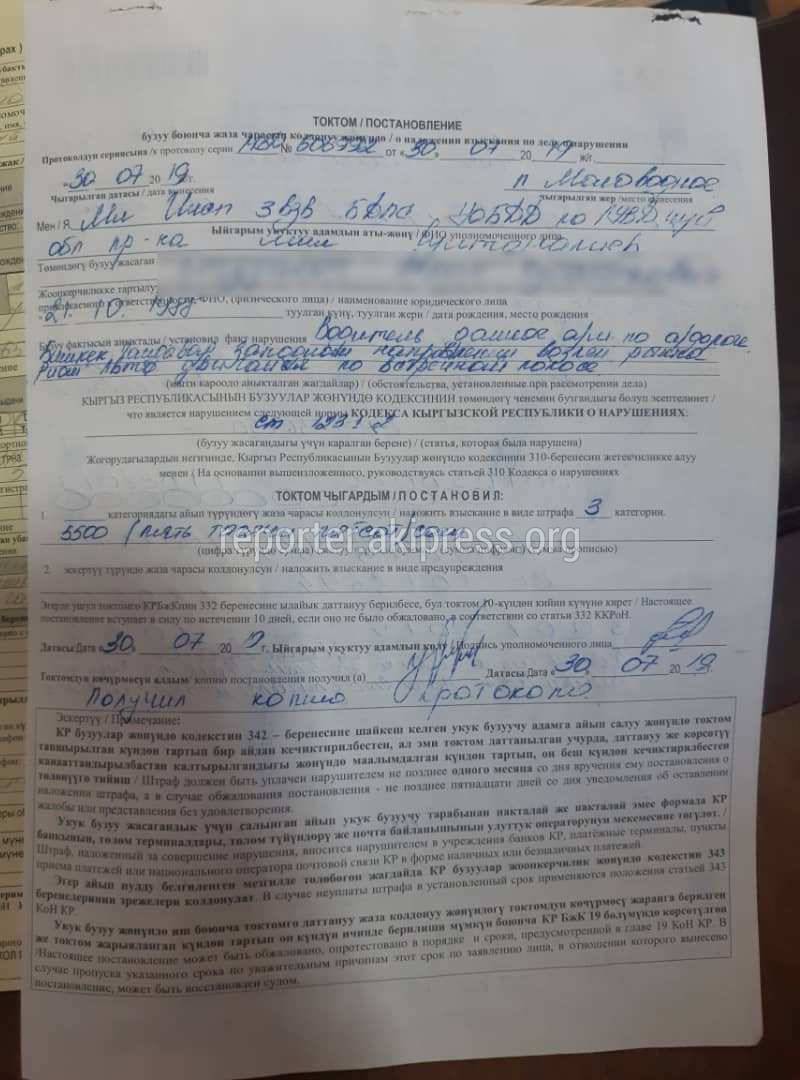 ТОКТОМ / ПОСТАНОВЛЕНИЕ
бузуу боюнча жаза чарасын колдонуу жөнүндө / о наложении взыскания по делу о нарушении
Протоколдун сериясына /к протоколу серии № от «30» 07 2019 ж/г
«30 07 2019г. п Маловодное
Чыгарылган датасы / дата вынесения чыгарылган жер /место вынесения
Мен / Я Мл Инсп
обл пр-ка
Ыйгарым укуктуу адамдын аты-жөнү / ФИО уполномоченного лица
Төмөндөгү бузуу жасаган
Жоопкерчиликке тартылуу
привлекаемого к ответственности, ФИО, (физического лица) / наименование юридического лица
«21. 10. 1988 туулган күнү, туулган жери / дата рождения, место рождения
Бузуу фактысын аныктады / установил факт нарушения Водитель данное а/м по а/дороге
Бишкек западном направлении возле рынка
по встречной полосе
(ишти кароодо аныкталган жагдайлар) / (обстоятельства, установленные при рассмотрении дела)
КЫРГЫЗ РЕСПУБЛИКАСЫНЫН БУЗУУЛАР ЖӨНҮНДӨ КОДЕКСИНИН төмөндөгү ченемин бузгандыгы болуп эсептелинет /
что является нарушением следующей нормы КОДЕКСА КЫРГЫЗСКОЙ РЕСПУБЛИКИ О НАРУШЕНИЯХ:
ст
(бузуу жасагандыгы үчүн каралган берене) / (статья, которая была нарушена)
Жогорудагылардын негизинде, Кыргыз Республикасынын Бузуулар жөнүндө кодексинин 310-беренесин жетекчиликке алуу
менен / На основании вышеизложенного, руководствуясь статьей 310 Кодекса о нарушениях
ТОКТОМ ЧЫГАРДЫМ / ПОСТАНОВИЛ:
1. категориядагы айып түрүндөгү жаза чарасы колдонулсун / наложить взыскание в виде штрафа 3 категории.
5500 (пять тысяч пятьсот) сом
reporter.akipress.org
2. эскертүү түрүндө жаза чарасы колдонулсун / наложить взыскание в виде предупреждения
Эгерде ушул токтомго КРБжКнин 332 беренесине ылайык даттануу берилбесе, бул токтом 10-күндөн кийин күчүнө кирет / Настоящее
постановление вступает в силу по истечении 10 дней, если оно не было обжаловано, в соответствии со статьи 332 ККРоН.
Датасы/Дата «30» 07 2019 г. Ыйгарым укуктуу адамдын колу / Подпись уполномоченного лица
Токтомдун көчүрмөсүн алдым/ копию постановления получил (а) Датасы/Дата «30 07 2019.
Получил копию протокола
Эскертүү / Примечание:
КР бузуулар жөнүндө кодексинин 342 – беренесине шайкеш келген укук бузуучу адамга айып салуу жөнүндө токтом
тапшырылган күндөн тартып бир айдан кечиктирилбестен, ал эми токтом даттанылган учурда, даттануу же көрсөтүү
канааттандырылбастан калтырылгандыгы жөнүндө маалымдалган күндөн тартып, он беш күндөн кечиктирилбестен
төлөнүүгө тийиш / Штраф должен быть уплачен нарушителем не позднее одного месяца со дня вручения ему постановления о
наложении штрафа, а в случае обжалования постановления - не позднее пятнадцати дней со дня уведомления об оставлении
жалобы или представления без удовлетворения.
Укук бузуу жасагандык үчүн салынган айып укук бузуучу тарабынан накталай же накталай эмес формада КР
банкынын, төлөм терминалдары, төлөм түйүндөрү же почта байланышынын улуттук операторунун мекемесине төгүлөт. /
Штраф, наложенный за совершение нарушения, вносится нарушителем в учреждения банков КР, платёжные терминалы, пункты
приема платежей или национального оператора почтовой связи КР в форме наличных или безналичных платежей.
Эгер айып пулду белгиленген мезгилде төлөбөгөн жагдайда КР бузуулар жоопкерчилик жөнүндө кодексинин 343
беренелеринин эрежелери колдонулат. В случае неуплаты штрафа в установленный срок применяются положения статьей 343
КоН КР.
Укук бузуу жөнүндө иш боюнча токтомго даттануу жаза колдонуу жөнүндөгү токтомдун көчүрмөсү жаранга берилген
же токтом жарыяланган күндөн тартып он күндүн ичинде берилиши мүмкүн боюнча КР БжК 19 бөлүмүндө көрсөтүлгөн
/Настоящее постановление может быть обжаловано, опротестовано в порядке и сроки, предусмотренной в главе 19 КоН КР. В
случае пропуска указанного срока по уважительным причинам этот срок по заявлению лица, в отношении которого вынесено
постановление, может быть восстановлен судом.